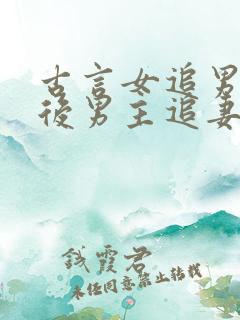 古言女追男
後男主追妻
錢霞君
未经同意禁止转载